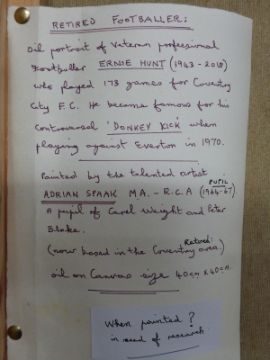 RETIRED FOOTBALLER:
Oil portrait of Veteran professional
Footballer ERNIE HUNT (1943 - 2018)
who played 173 games for Coventry
City F.C. He became famous for his
Controversial 'DONKEY KICK' when
playing against Everton in 1970.
Painted by the talented artist
PUPIL
ADRIAN SPAAK M.A. - R.C.A (1964-67)
A pupil of Carel Weight and Peter
Blake.
Retired
(now based in the Coventry area)
oil on Canvas size 40cm X 40cm.
When painted?
in need of research